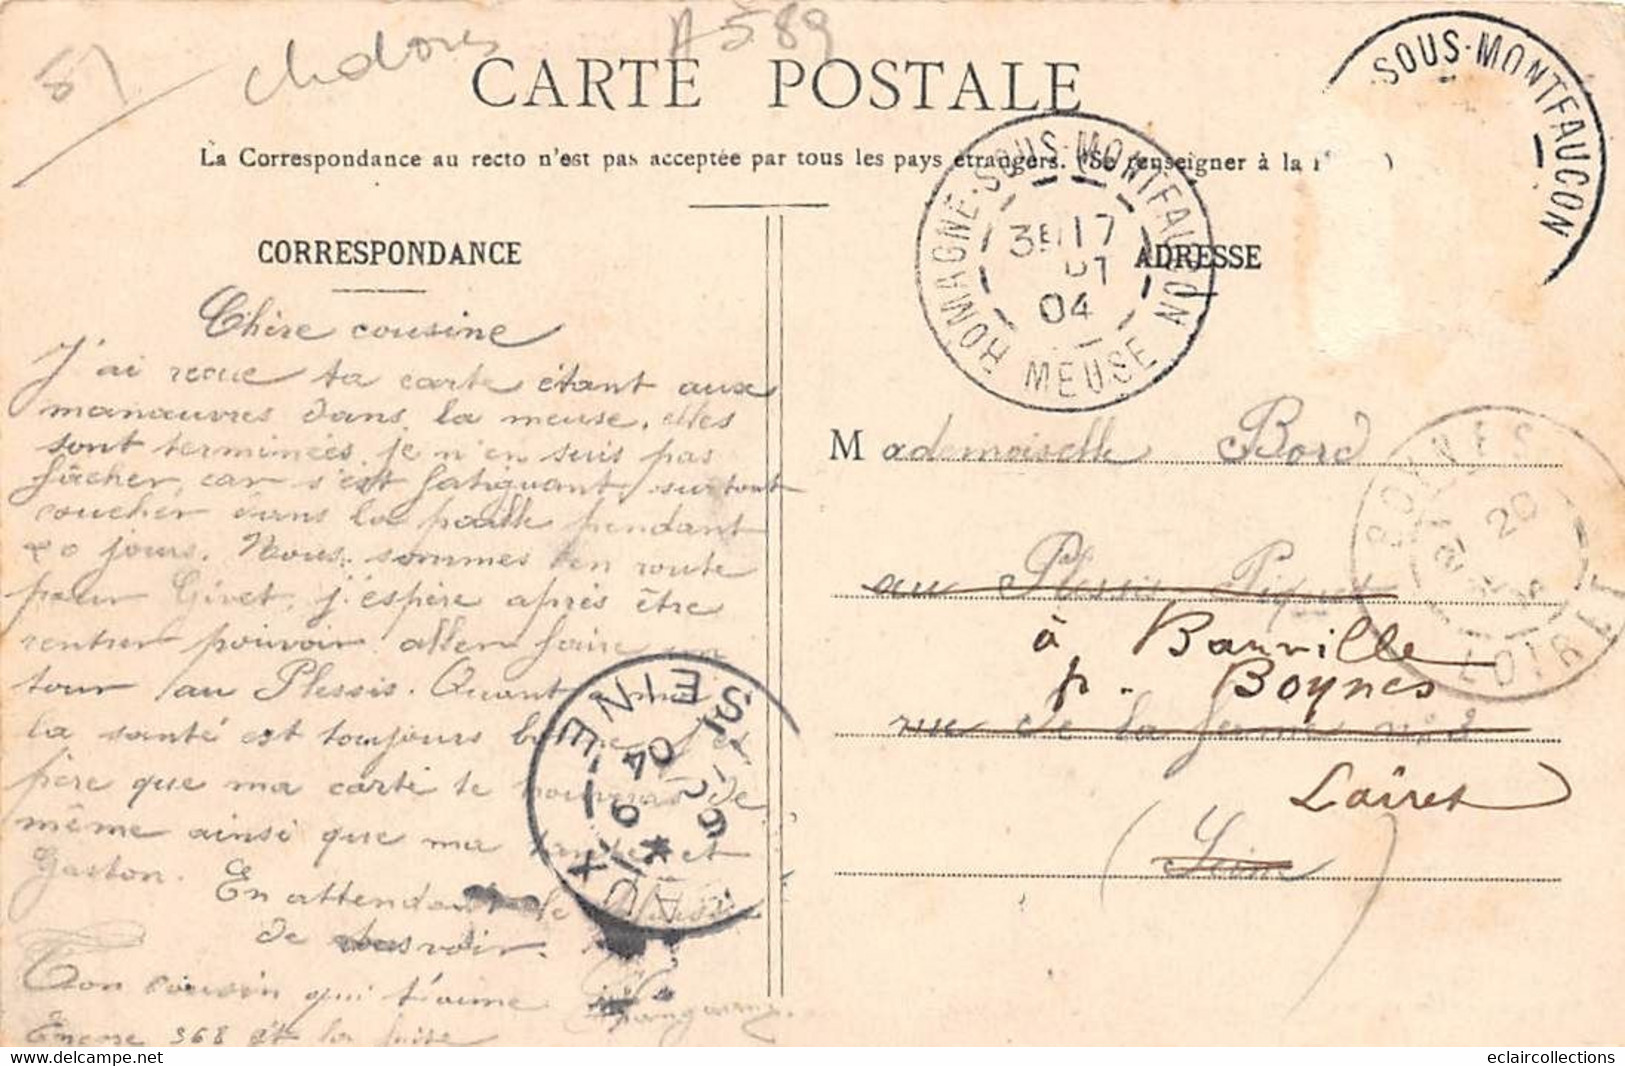 A 589
CARTE POSTALE
La Correspondance au recto n'est pas acceptée par tous les pays étrangers. (Se renseigner à la
SOUS-MONTFAUCON
ROMAGNE-SOUS-MONTFAUCON
17
04
MEUSE
CORRESPONDANCE
ADRESSE
Chère cousine
J'ai reçue ta carte étant aux
manœuvres dans la meuse. elles
sont terminées je n'en suis pas
fâcher, car s'est fatiguant surtout
coucher dans la paille pendant
20 jours. Nous sommes en route
pour Givet, j'espère après être
rentrer pouvoir aller faire un
tour au Plessis. Quant à ma
la santé est toujours bonne, j'es
père que ma carte te de
même ainsi que ma tante et
Gaston. En attendant le plaisir
de se voir.
Ton cousin qui t'aime
Encore 368 et la fuite
Mademoiselle Bord
au Plessis Piquet
à Barville
p. Boynes
rue de la ferme n° 2
Loiret
(Seine)
BOYNES
20
LOIRET
SEINE
04
eclaircollections